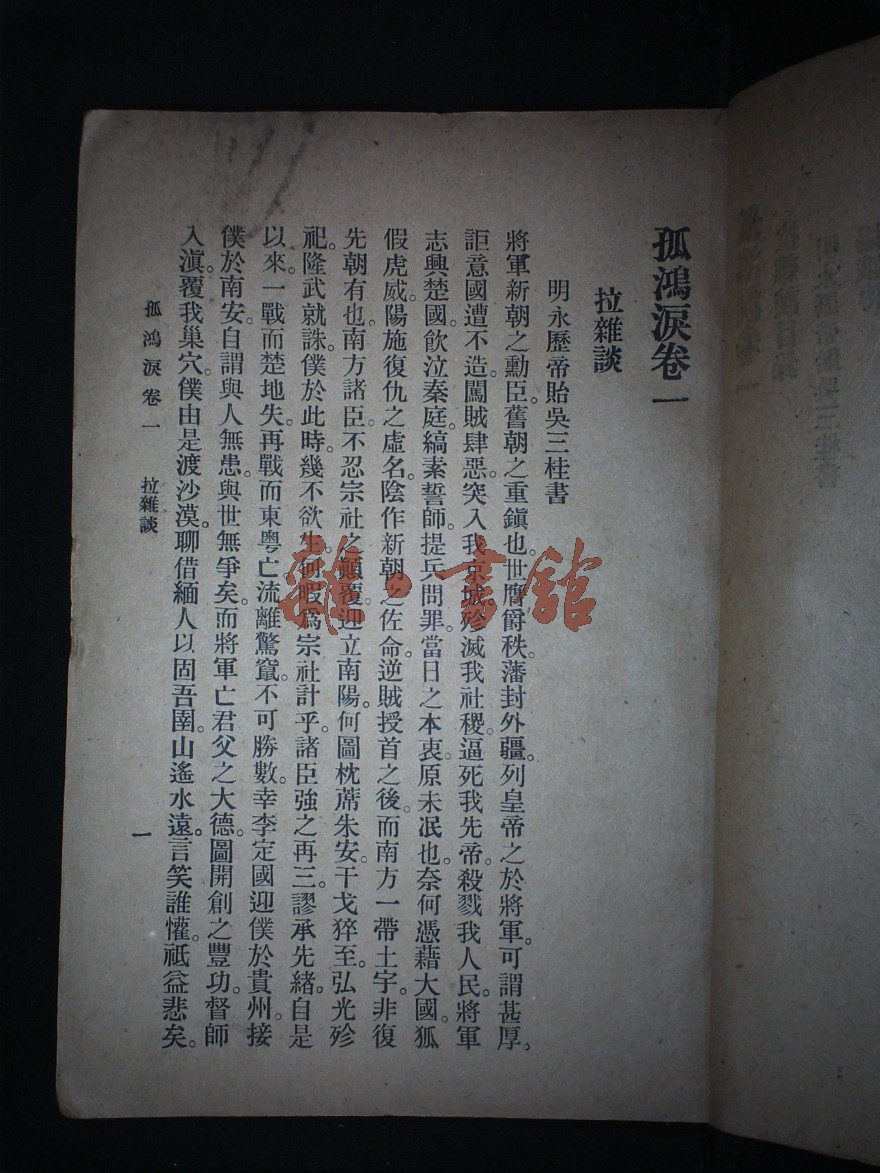 孤鴻淚卷一
拉雜談
明永歷帝貽吳三桂書
將軍新朝之勳臣。舊朝之重鎮也。世膺爵秩。藩封外疆。列皇帝之於將軍。可謂甚厚。
詎意國遭不造。闖賊肆惡。突入我京城。殄滅我社稷。逼死我先帝。殺戮我人民。將軍
志興楚國。飲泣秦庭。縞素誓師。提兵問罪。當日之本衷。原未泯也。奈何憑藉大國。狐
假虎威。陽施復仇之虛名。陰作新朝之佐命。逆賊授首之後。而南方一帶土宇。非復
先朝有也。南方諸臣。不忍宗社之顚覆。迎立南陽。何圖枕蓆朱安。干戈猝至。弘光殄
祀。隆武就誅。僕於此時。幾不欲生。何暇爲宗社計乎。諸臣強之再三。謬承先緒。自是
以來。一戰而楚地失。再戰而東粵亡。流離驚竄。不可勝數。幸李定國迎僕於貴州。接
僕於南安。自謂與人無患。與世無爭矣。而將軍亡君父之大德。圖開創之豐功。督師
入滇。覆我巢穴。僕由是渡沙漠。聊借緬人以固吾圉。山遙水遠。言笑誰懽。祇益悲矣。
孤鴻淚卷一 拉雜談
一
雜·書館